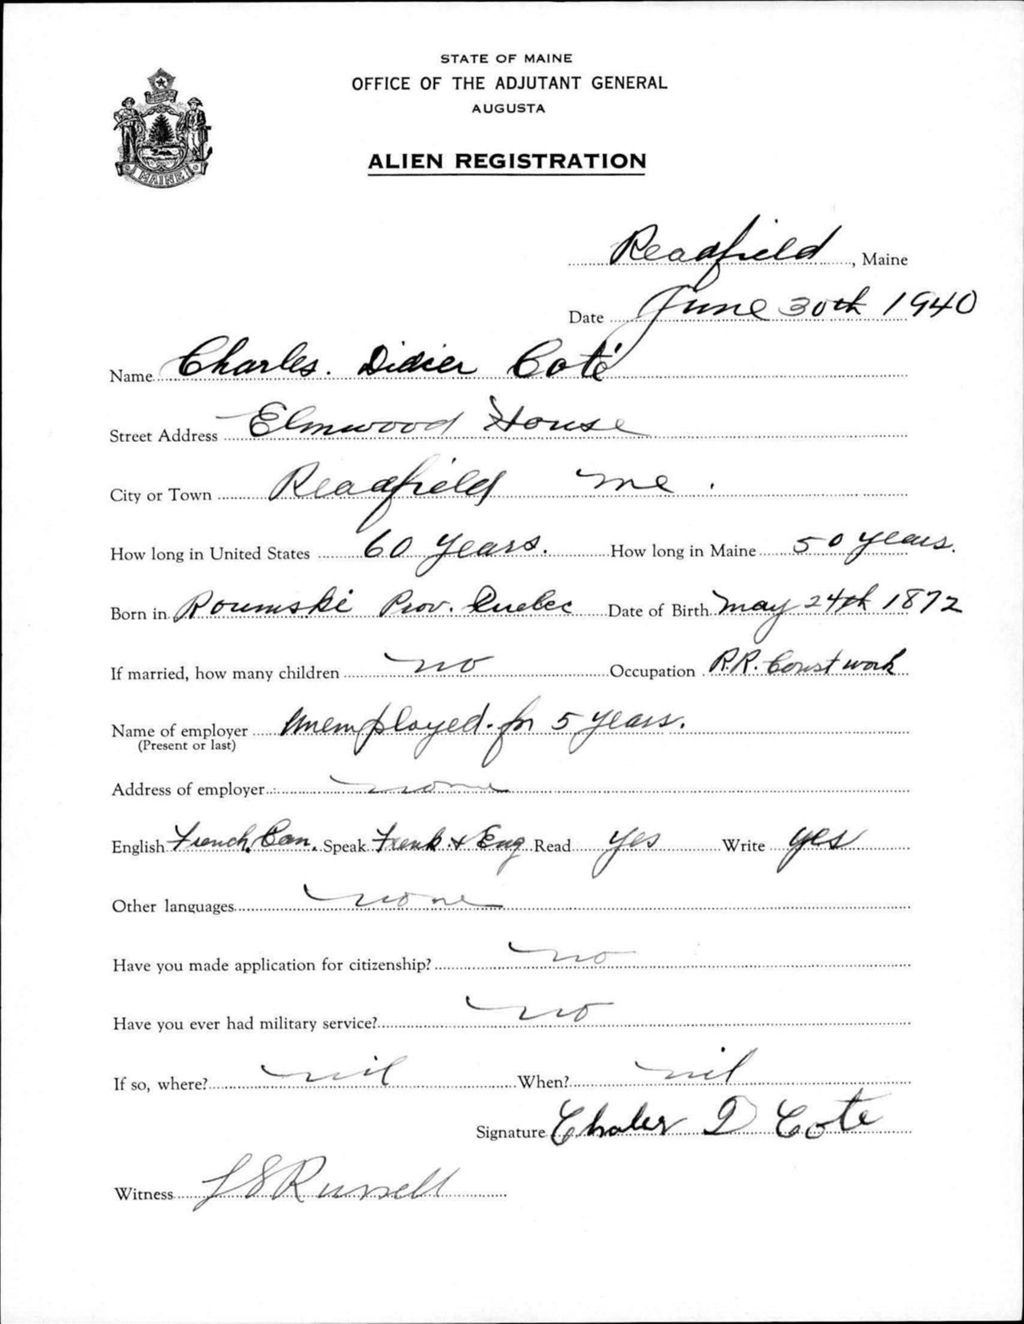 STATE OF MAINE
OFFICE OF THE ADJUTANT GENERAL
AUGUSTA
ALIEN REGISTRATION
MAINE
Readfield, Maine
Date June 30th 1940
Name Charles. Didier Coté
Street Address Elmwood House
City or Town Readfield me.
How long in United States 60 years. How long in Maine 50 years.
Born in Roumski Prov. Quebec Date of Birth may 24th 1872
If married, how many children no Occupation R.R. Const work
Name of employer Unemployed. for 5 years.
(Present or last)
Address of employer none
English French, Can. Speak Frenk & Eng Read yes Write yes
Other languages none
Have you made application for citizenship? no
Have you ever had military service? no
If so, where? nil When? nil
Signature Chales D Cote
Witness L S Russell